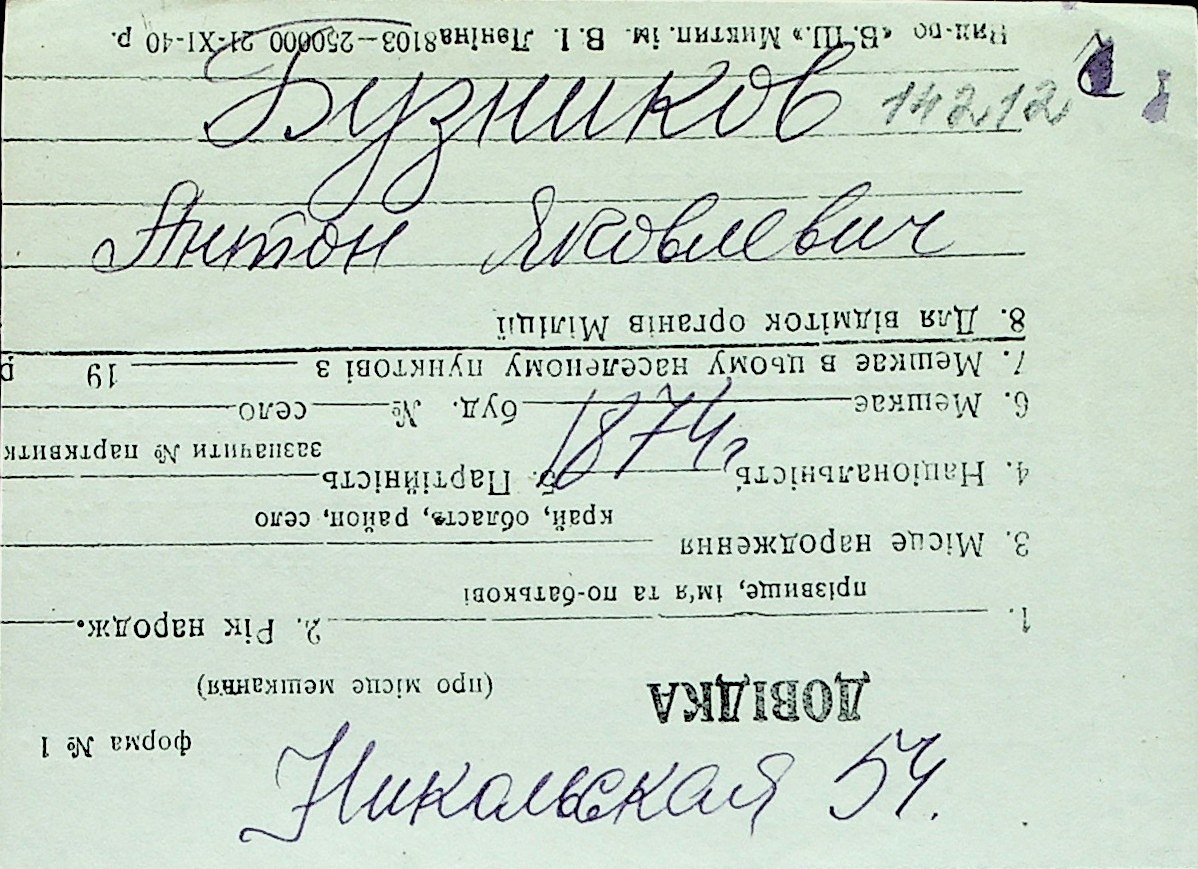 Бузников 14212
Антон Яковлевич
1874г
Никольская 54.
форма № 1
ДОВІДКА
(про місце мешкання)
1. 2. Рік народж.
прізвище, ім'я та по-батькові
3. Місце народження
край, область, район, село
4. Національність 5. Партійність
зазначити № партквитк
6. Мешкає буд. № село
7. Мешкає в цьому населеному пунктові з 19 р
8. Для відміток органів Міліції
«Б. Ш.» Миктип. ім. В. І. Леніна 8103—250000 21-XI-40 р.